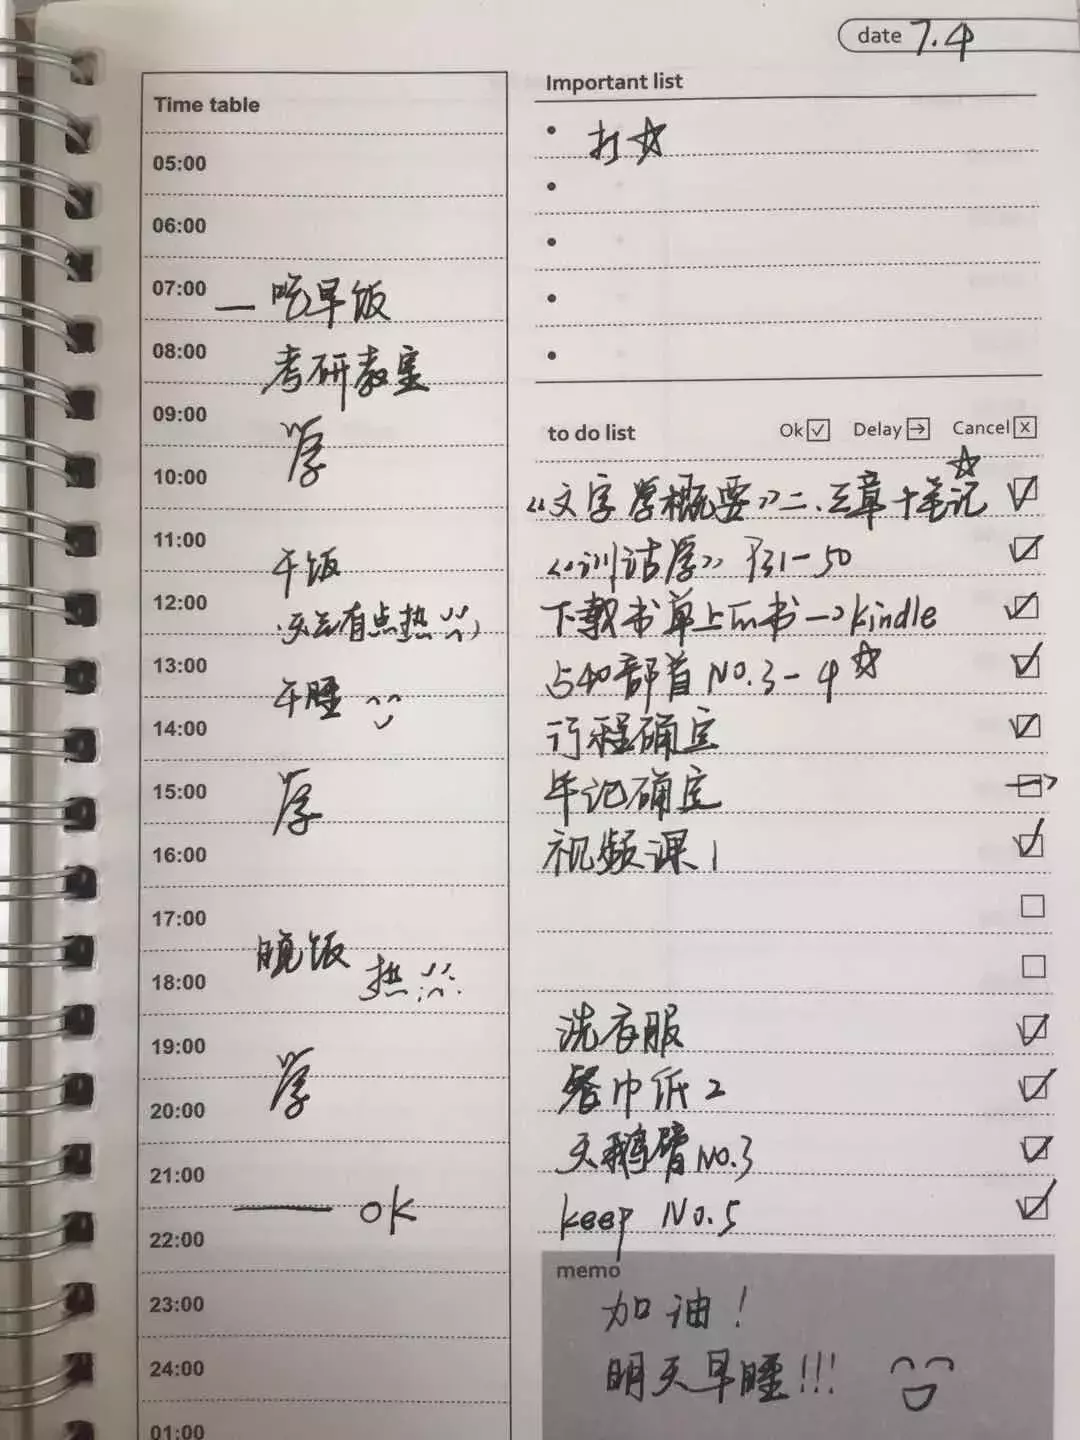 date 7.4
Time table
05:00
06:00
07:00 — 吃早饭
08:00 考研教室
09:00
学
10:00
11:00
午饭
12:00
有点热
13:00
午睡
14:00
15:00 学
16:00
17:00
晚饭
18:00 热
19:00
学
20:00
21:00
—— ok
22:00
23:00
24:00
01:00
Important list
• 打☆
to do list Ok ☑ Delay → Cancel x
《文字学概要》二、三章+笔记 ☆
《训诂学》P31-50
下载书单上的书→kindle
540部首 NO.3-4 ☆
行程确定
笔记确定
视频课1
洗衣服
餐巾纸2
天鹅臂NO.3
keep NO.5
memo
加油!
明天早睡!!!